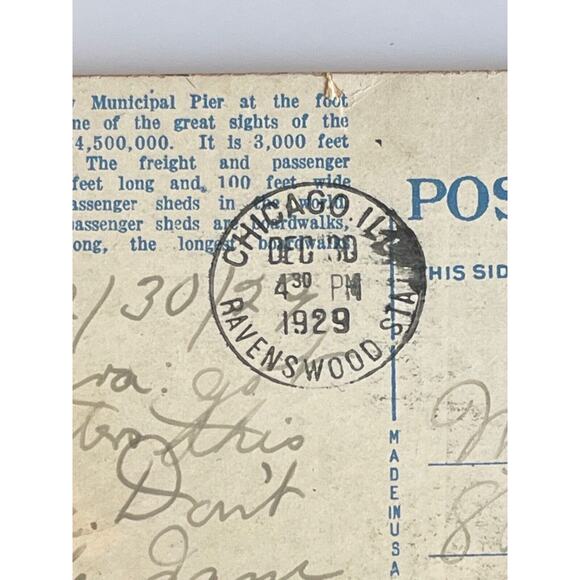 Municipal Pier at the foot
ne of the great sights of the
4,500,000. It is 3,000 feet
The freight and passenger
feet long and 100 feet wide
assenger sheds in the world.
passenger sheds are boardwalks,
ong, the longest boardwalks,
CHICAGO, ILL.
DEC 30
4 30 PM
1929
RAVENSWOOD STA.
POS
THIS SID
/30/29
go
this
Don't
MADE IN USA